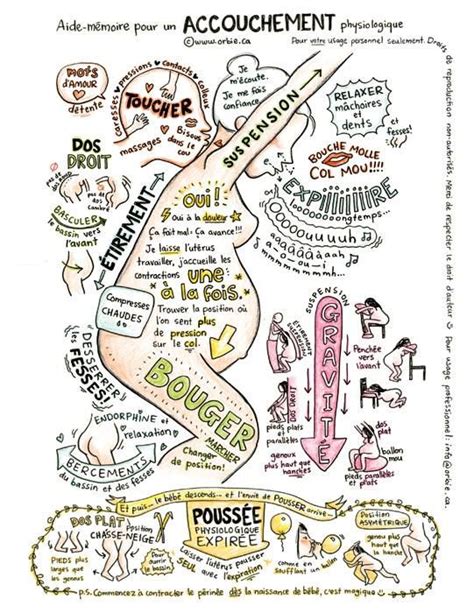 Aide-mémoire pour un ACCOUCHEMENT physiologique
©www.orbie.ca
Pour votre usage personnel seulement. Droits de reproduction non-autorisés. Merci de respecter le droit d'auteur
Pour usage professionnel: info@orbie.ca.
MOTS D'AMOUR
détente
caresses • pressions • contacts • colleux
TOUCHER
Bisous
massages dans le cou
Je m'écoute.
Je me fais confiance.
SUSPENSION
RELAXER
mâchoires
et dents
et fesses!
BOUCHE MOLLE
COL MOU!!!!
EXPIIIIIIIIRE
DOS
DROIT
pas de dos cambré
BASCULER
le bassin vers
l'avant
ÉTIREMENT
Oui!
Oui à la douleur
Ça fait mal = Ça avance!!!
Je laisse l'utérus
travailler, j'accueille les
contractions une
à la fois.
Trouver la position où
l'on sent plus
de pression
sur le col.
Compresses
CHAUDES
DESSERRER
les FESSES!
BOUGER
MARCHER
Changer
de position!
ENDORPHINE et
relaxation
BERCEMENTS
du bassin et des fesses
SUSPENSION
GRAVITÉ
ÉTIREMENT
SUSPENSION
Dos Droit
pieds plats
et parallèles
genoux
plus haut que
hanches
Penchée vers
l'avant
Dos plat
ballon
mou
pieds parallèles
et plats
Et puis... le bébé descends... et l'envie de POUSSER arrive...
POUSSÉE
PHYSIOLOGIQUE
EXPIRÉE
Laisser l'utérus pousser
SEUL avec l'expiration
DOS PLAT
Position
CHASSE-NEIGE
PIEDS plus
larges que
les genoux
Pour
ouvrir
le bassin
comme en
soufflant un
ballon
Position
ASYMÉTRIQUE
genou plus
haut que
la hanche
P.S. Commencez à contracter le périnée dès la naissance de bébé, c'est magique